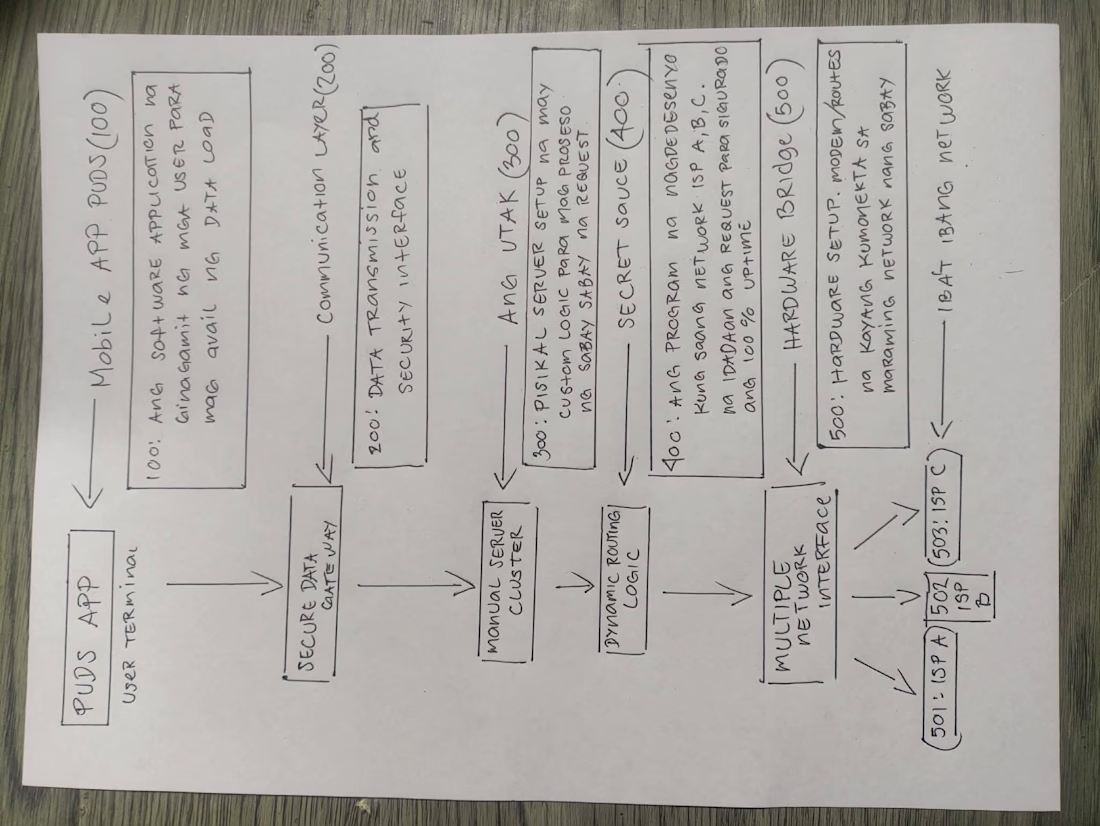 PUDS APP
USER TERMINAL
MOBILE APP PUDS (100)
100: ANG SOFTWARE APPLICATION NA
GINAGAMIT NG MGA USER PARA
MAG AVAIL NG DATA LOAD
SECURE DATA
GATEWAY
COMMUNICATION LAYER (200)
200: DATA TRANSMISSION and
SECURITY INTERFACE
MANUAL SERVER
CLUSTER
ANG UTAK (300)
300: PISIKAL SERVER SETUP NA MAY
CUSTOM LOGIC PARA MAG PROSESO
NG SABAY SABAY NA REQUEST.
DYNAMIC ROUTING
LOGIC
SECRET SAUCE (400)
400: ANG PROGRAM NA NAGDEDESENYO
KUNG SAANG NETWORK ISP A, B, C.
NA IDADAAN ANG REQUEST PARA SIGURADO
ANG 100% UPTIME
MULTIPLE
NETWORK
INTERFACE
HARDWARE BRIDGE (500)
500: HARDWARE SETUP. MODEM/ROUTES
NA KAYANG KUMONEKTA SA
MARAMING NETWORK NANG SABAY
501: ISP A
502
ISP
B
503: ISP C
IBA'T IBANG NETWORK